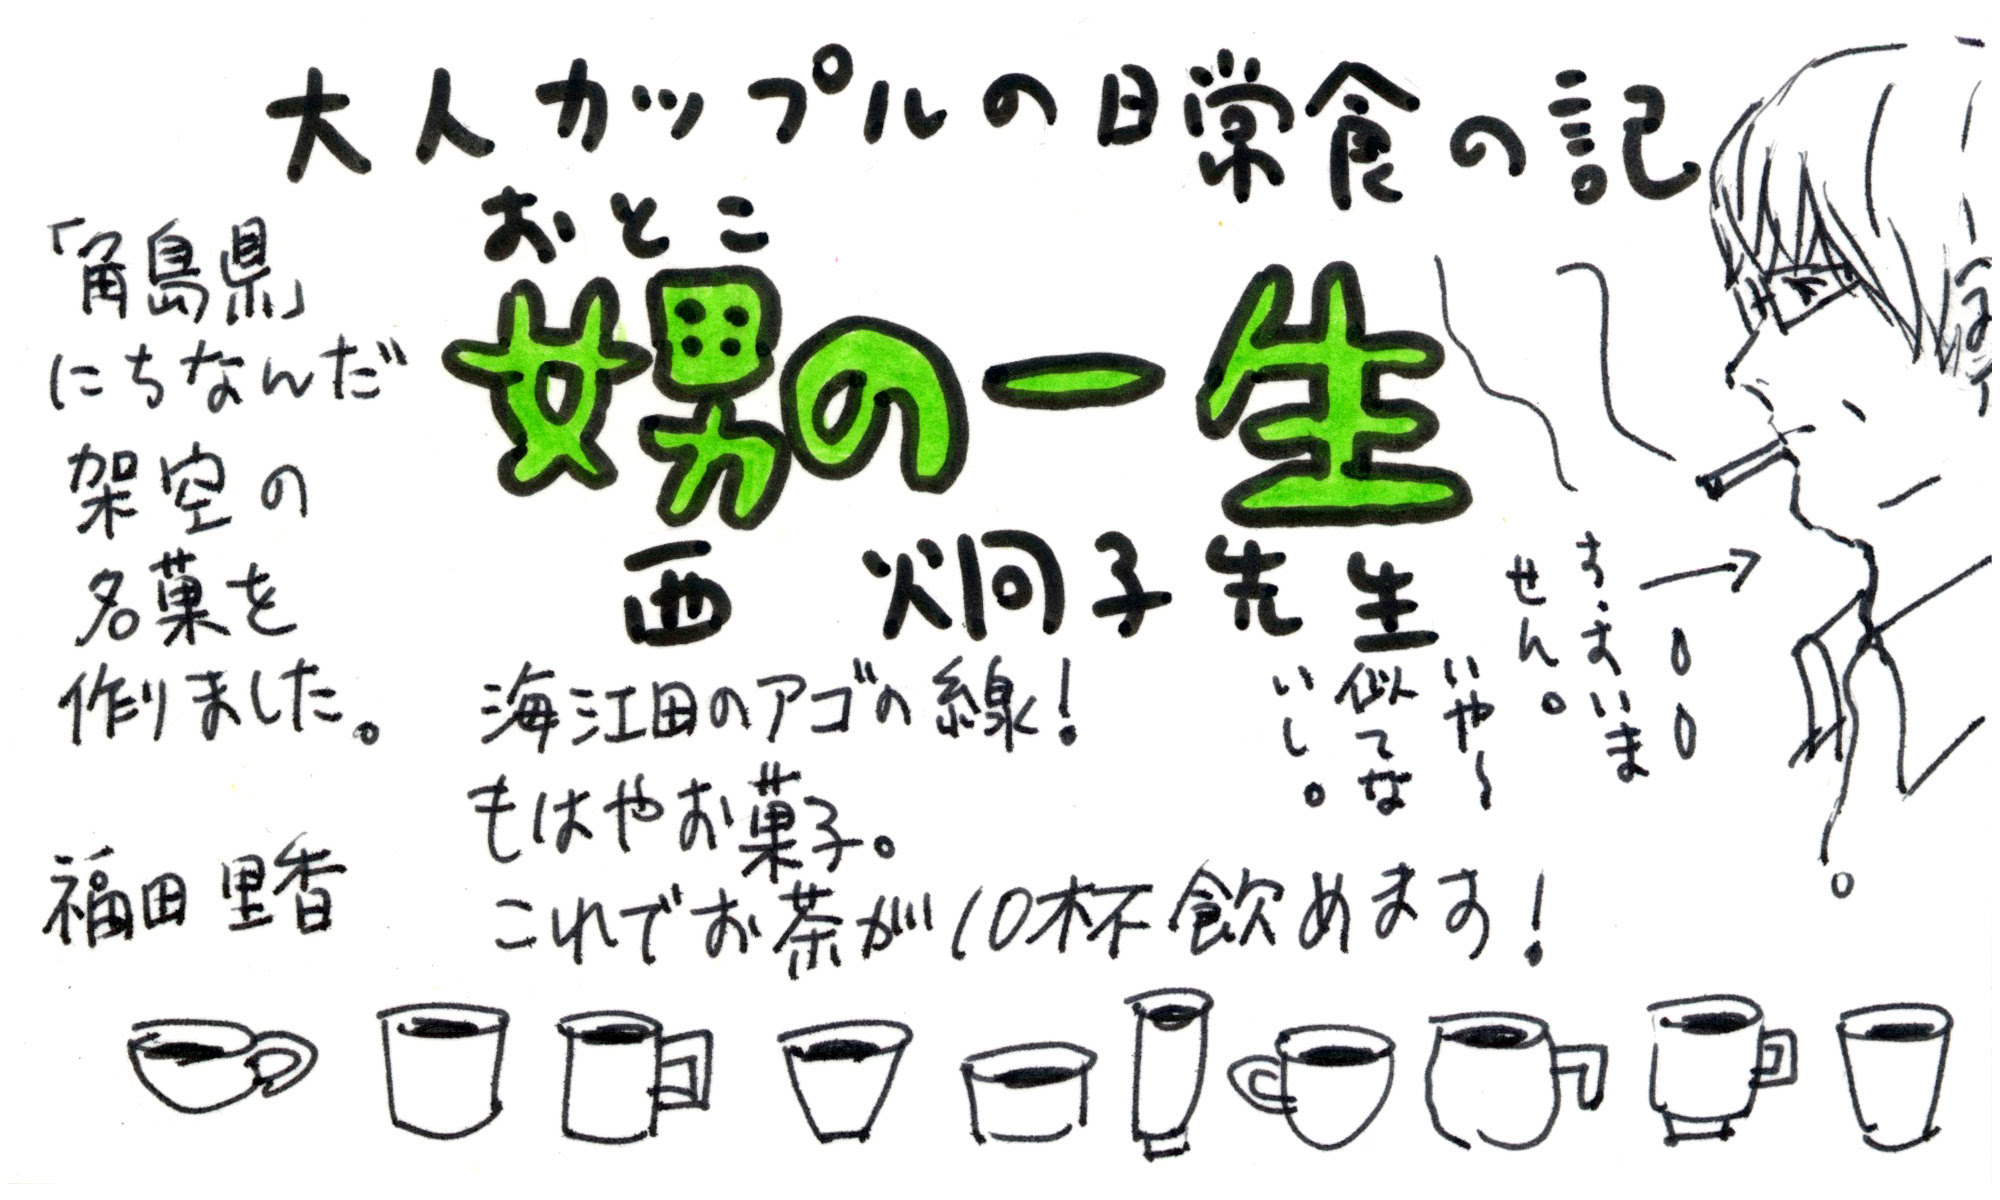 大人カップルの日常食の記
おとこ
娚の一生
西 炯子先生
「角島県」
にちなんだ
架空の
名菓を
作りました。
福田里香
海江田のアゴの線!
もはやお菓子。
これでお茶が10杯飲めます!
す、すいま
せん。
いや〜
似てな
いし。